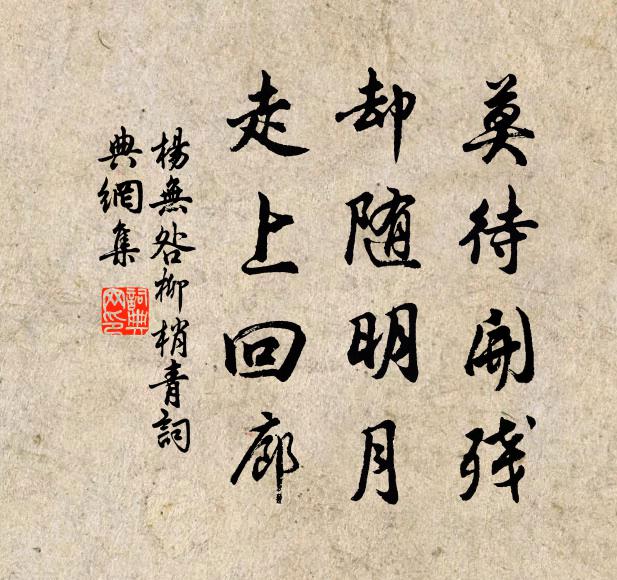 莫待開残
却随明月
走上回廊
楊無咎柳梢青詞
典網集
詞典網印